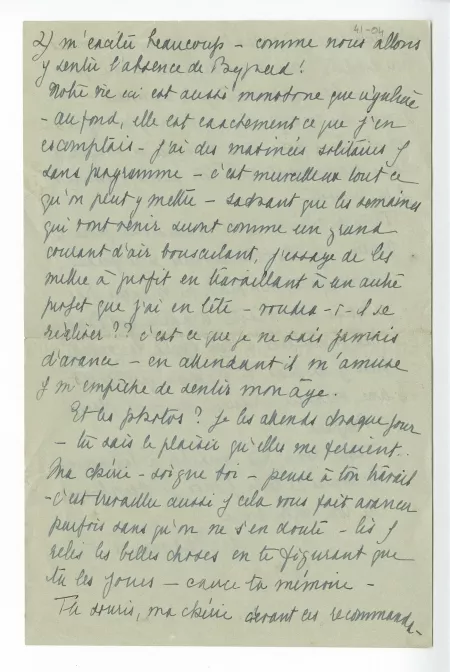 41-04
2) m'excite beaucoup - comme nous allons
y sentir l'absence de !
Notre vie ici est aussi monotone que régulière
- au fond, elle est exactement ce que j'en
escomptais - j'ai des matinées solitaires &
sans programme - c'est merveilleux tout ce
qu'on peut y mettre - sachant que les semaines
qui vont venir seront comme un grand
courant d'air bousculant, j'essaye de les
mettre à profit en travaillant à un autre
projet que j'ai en tête - voudra-t-il se
réaliser ?? c'est ce que je ne sais jamais
d'avance - en attendant il m'amuse
& m'empêche de sentir mon âge.
Et les photos ? je les attends chaque jour
- tu sais le plaisir qu'elles me feraient..
Ma chérie - soigne toi - pense à ton travail
- c'est travailler aussi & cela vous fait avancer
parfois sans qu'on ne s'en doute - lis &
relis les belles choses en te figurant que
tu les joues - exerce ta mémoire -
Tu souris, ma chérie devant ces recommanda-